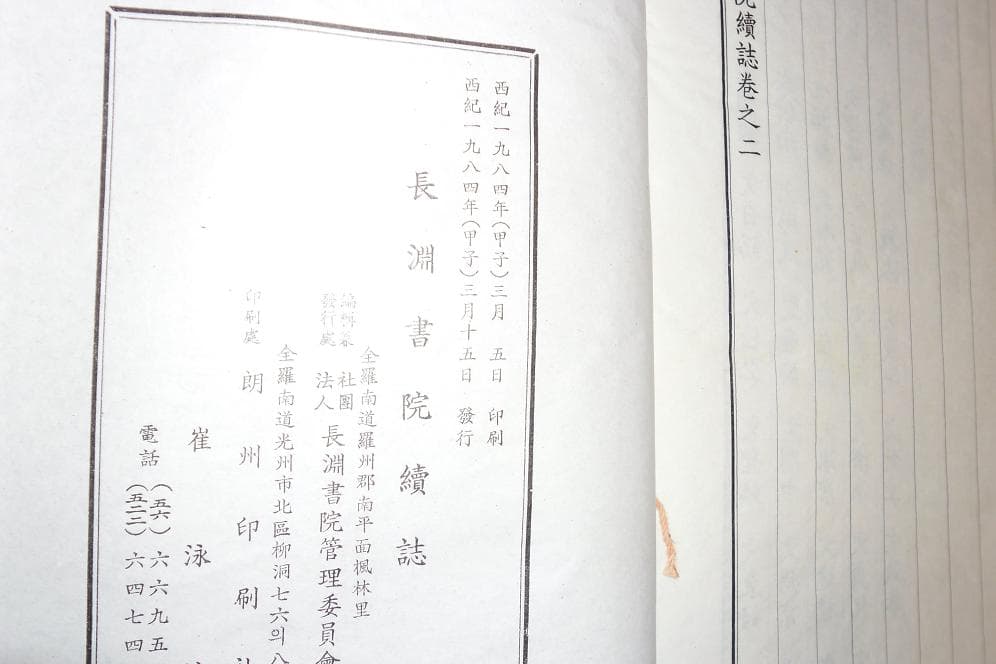 續誌卷之二
西紀一九八四年(甲子)三月 五日 印刷
西紀一九八四年(甲子)三月十五日 發行
長淵書院續誌
全羅南道羅州郡南平面楓林里
編輯兼
發行處
社團
法人
長淵書院管理委員會
全羅南道光州市北區柳洞七六의八
印刷處
朗州印刷社
崔泳
電話
(五六)六六九五
(五二二)六四七四